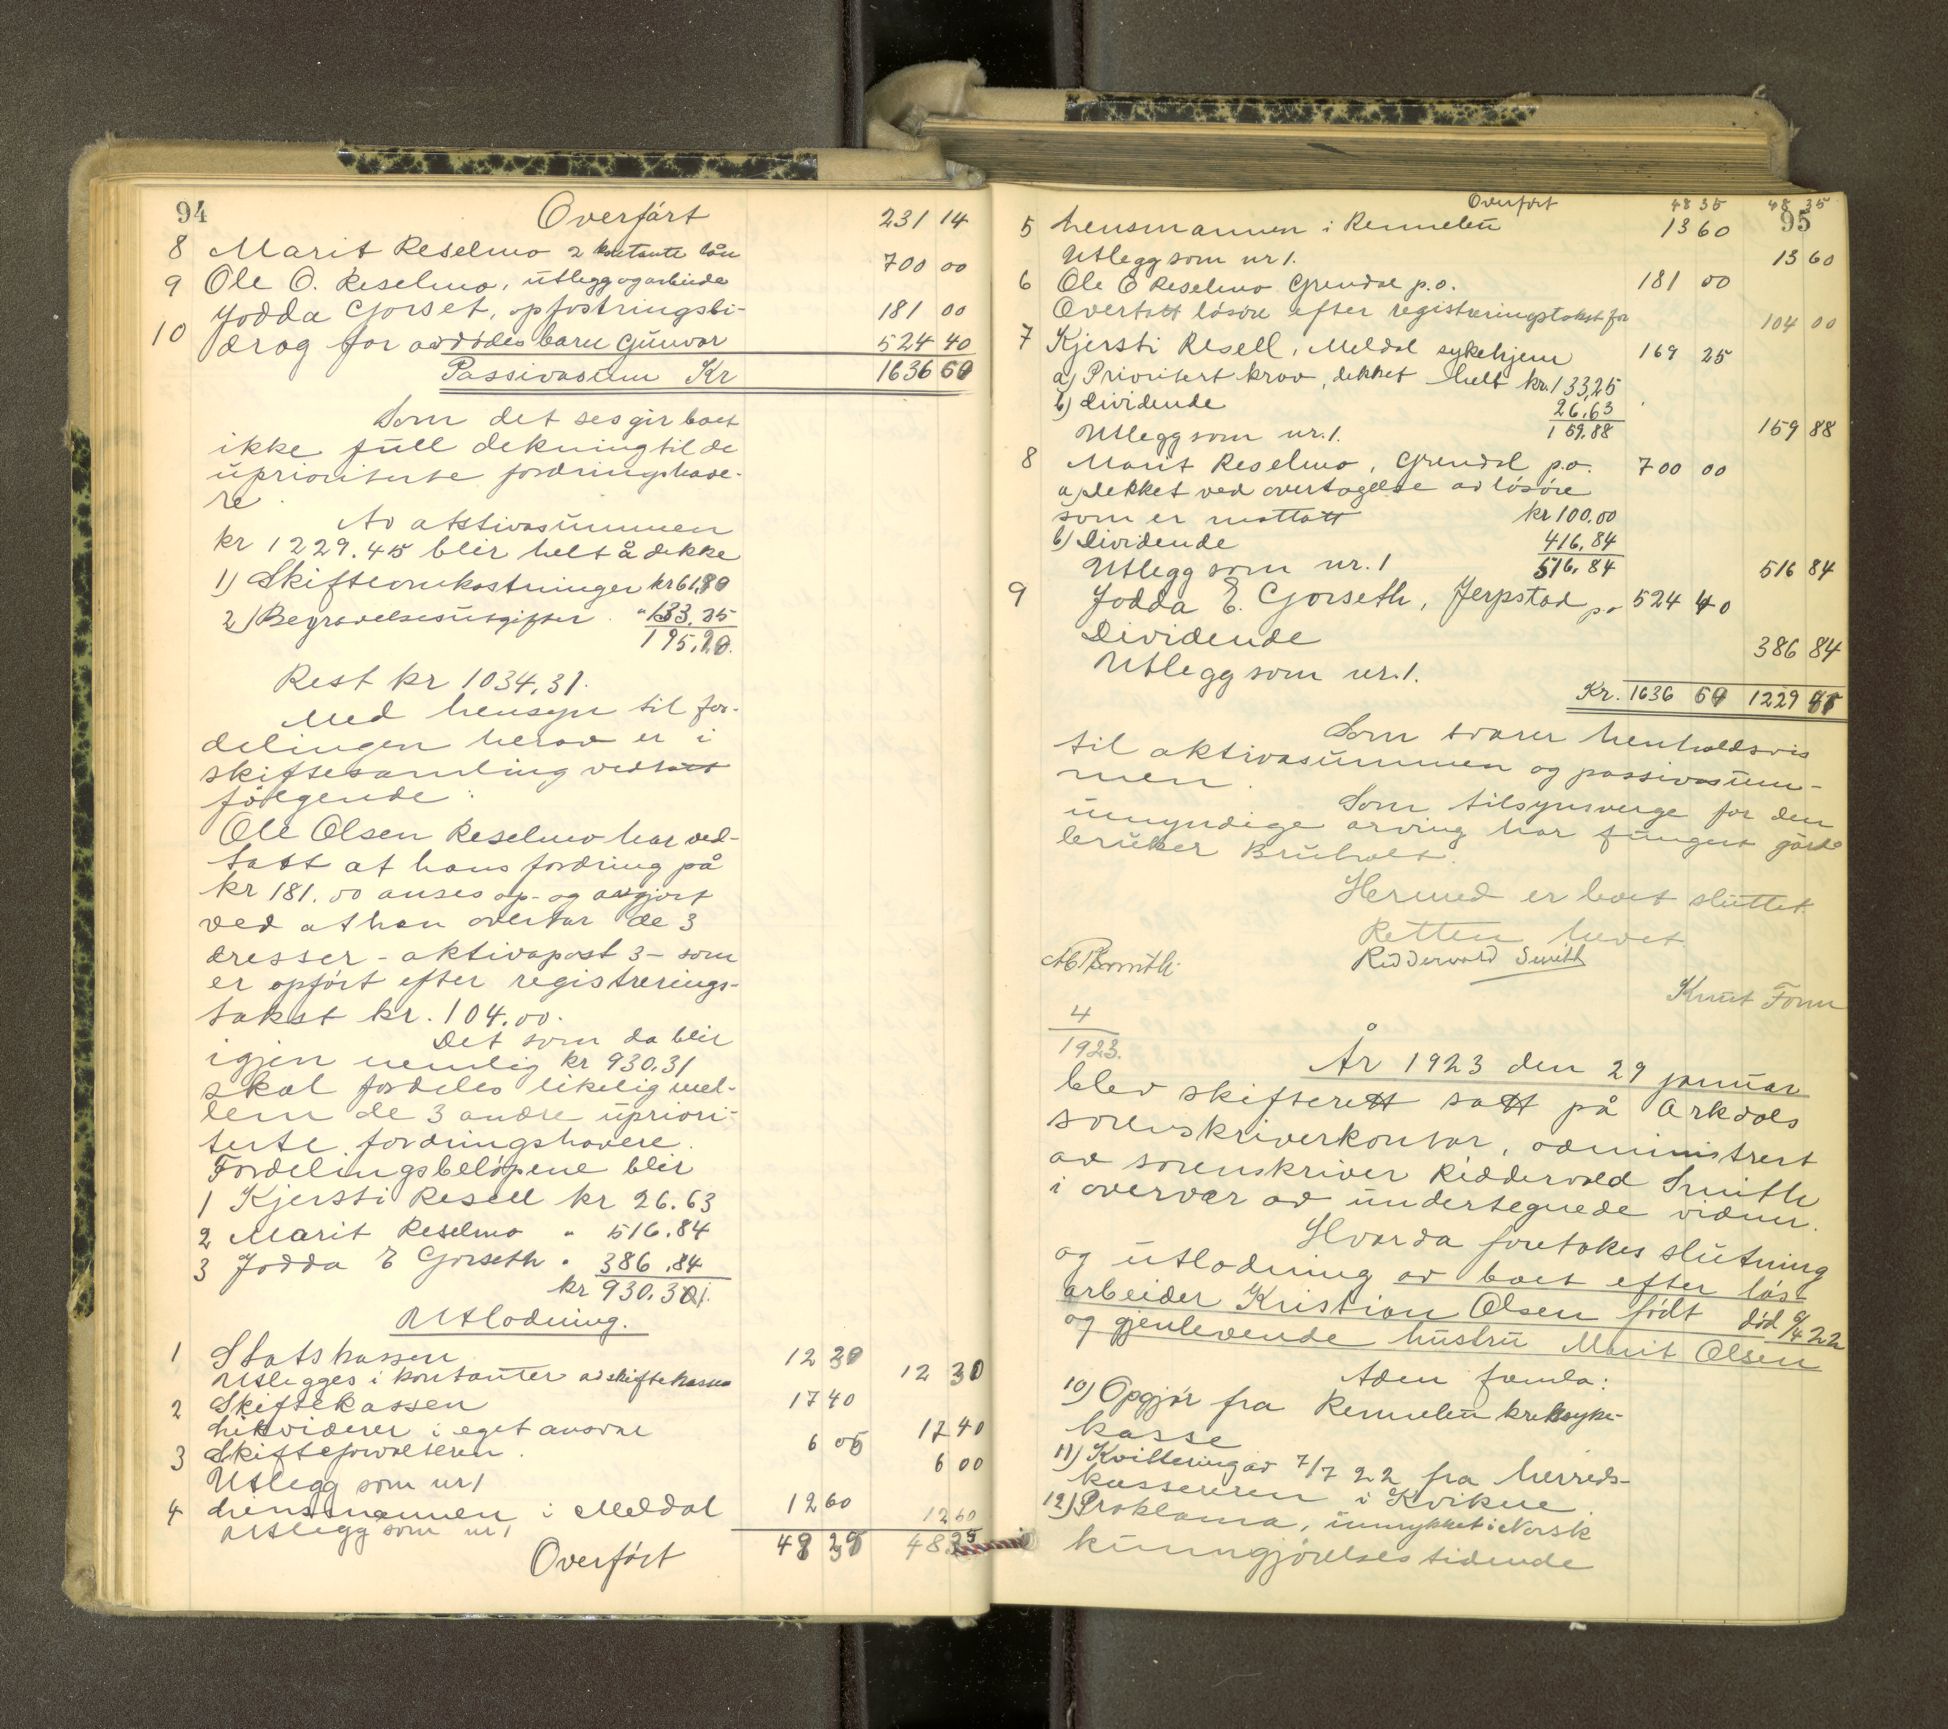 94
Overført 231 14
8 Marit Reselmo 2 kontante lån 700 00
9 Ole O. Reselmo, utlegg og arbeide 181 00
Jodda Gorset, opfostringsbi-
10 drag for avdødes barn Gunvor 524 40
Passivasum Kr 1636 60
Som det ses gir boet
ikke full dekning til de
uprioriterte fordringshave-
re.
Av aktivasummen
kr 1229.45 blir helt å dekke
1) Skifteomkostninger kr 61,89
2) Begravelsesutgifter " 133.25
195,20.
Rest kr 1034,31.
Med hensyn til for-
delingen herav er i
skiftesamling vedtatt
følgende:
Ole Olsen Reselmo har ved-
tatt at hans fordring på
kr 181.00 anses op- og avgjort
ved at han overtar de 3
dresser - aktivapost 3 - som
er opført efter registrerings-
takst kr. 104.00.
Det som da blir
igjen nemlig kr 930.31
skal fordeles likelig mel-
lem de 3 andre upriori-
terte fordringshavere.
Fordelingsbeløpene blir
1 Kjersti Resell kr 26.63
2 Marit Reselmo " 516.84
3 Jodda E Gorseth " 386.84
kr 930.31.
Utlodning.
1 Statskassen 12 30
Utlegges i kontanter av skiftekassen 12 30
2 Skiftekassen 17 40
Likviderer i eget ansvar 17 40
3 Skifteforvalteren. 6 05
Utlegg som nr 1 6 00
4 Lensmannen i Meldal 12 60
Utlegg som nr 1 12 60
Overført 48 35 48 35
Overført 48 35 48 35
95
5 Lensmannen i Rennebu 13 60
Utlegg som nr 1. 13 60
6 Ole O Reselmo Grendal p.o. 181 00
Overtatt løsøre efter registreringstakst for 104 00
7 Kjersti Resell, Meldal sykehjem 169 25
a) Prioritert krav, dekket helt kr. 133,25
b) Dividende 26,63
Utlegg som nr. 1. 159.88 159 88
8 Marit Reselmo, Grendal p.o. 700 00
a) Dekket ved overtagelse av løsøre
som er mottatt kr 100.00
b) Dividende 416,84
Utlegg som nr. 1 516,84 516 84
9 Jodda E. Gorseth, Jerpstad po 524 40
Dividende 386 84
Utlegg som nr. 1.
Kr. 1636 60 1229 45
Som svarer henholdsvis
til aktivasummen og passivasum-
men.
Som tilsynsverge for den
umyndige arving har fungert gård-
bruker Bruholt.
Hermed er boet sluttet.
Retten hevet.
Ridderwold Smith
Knut Form
4
1923.
År 1923 den 29 januar
blev skifterett satt på Orkdals
sorenskriverkontor, administrert
av sorenskriver Ridderwold Smith
i overvær av undertegnede vidner.
Hvorda foretokes slutning
og utlodning av boet efter løs-
arbeider Kristian Olsen født død 6/4 22
og gjenlevende hustru Marit Olsen
Aden femla:
10) Opgjør fra Rennebu kretssyke-
kasse
11) Kvittering av 7/7 22 fra herreds-
kassereren i Kvikne
12) Proklama, innrykket i Norsk
kunngjørelsestidende